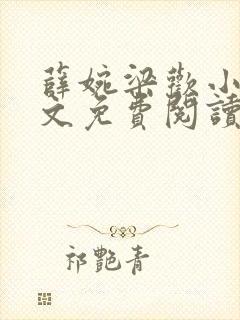 薛婉梁歡小
文免費閱讀
祁艷青